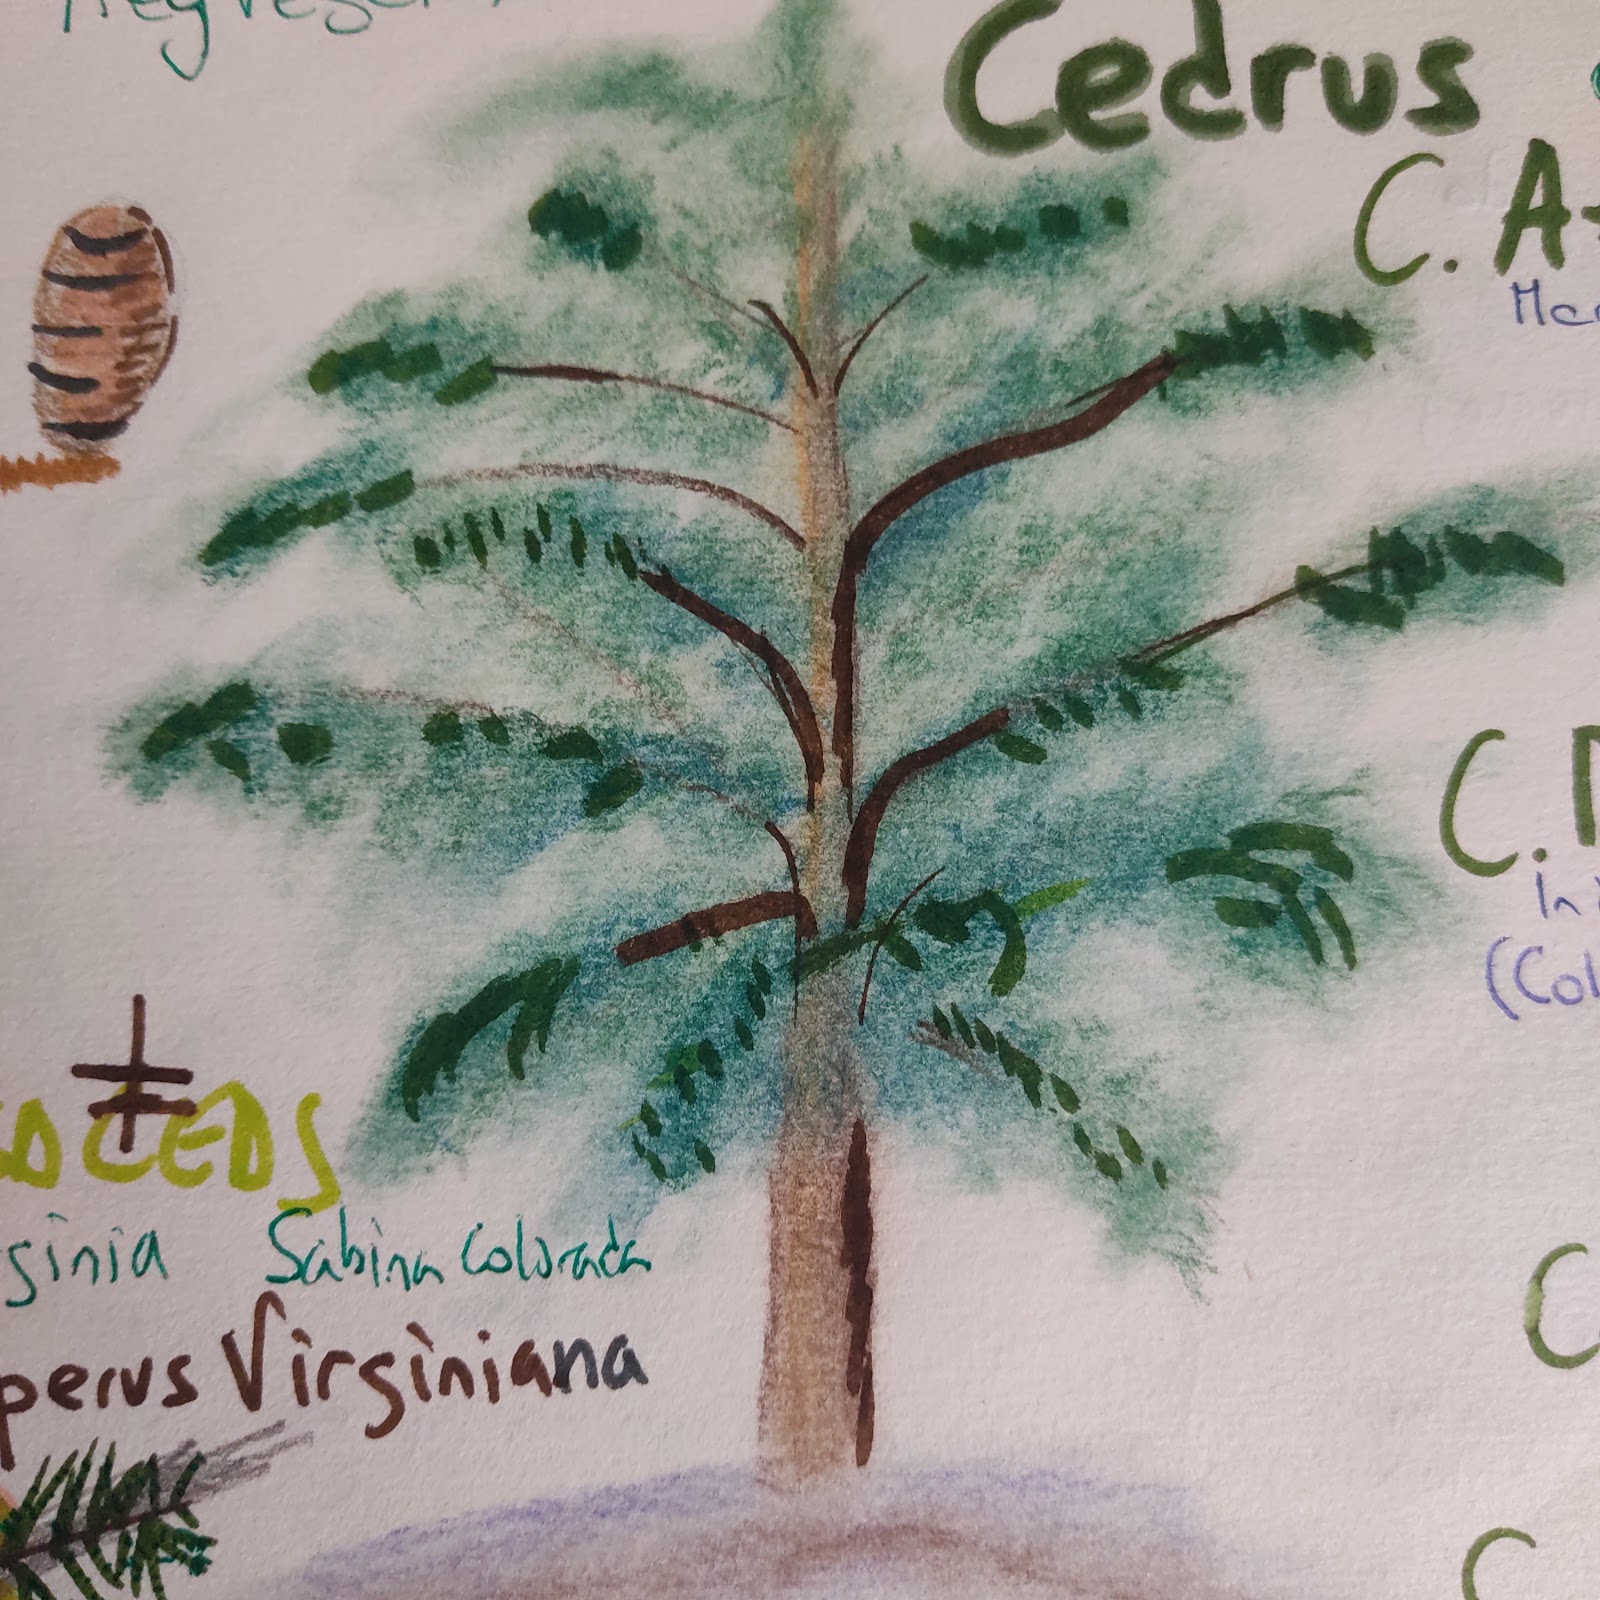 Cedrus
C. A
C.
In
(Col
CEDS
ginia Sabina Colorada
perus Virginiana
C
C